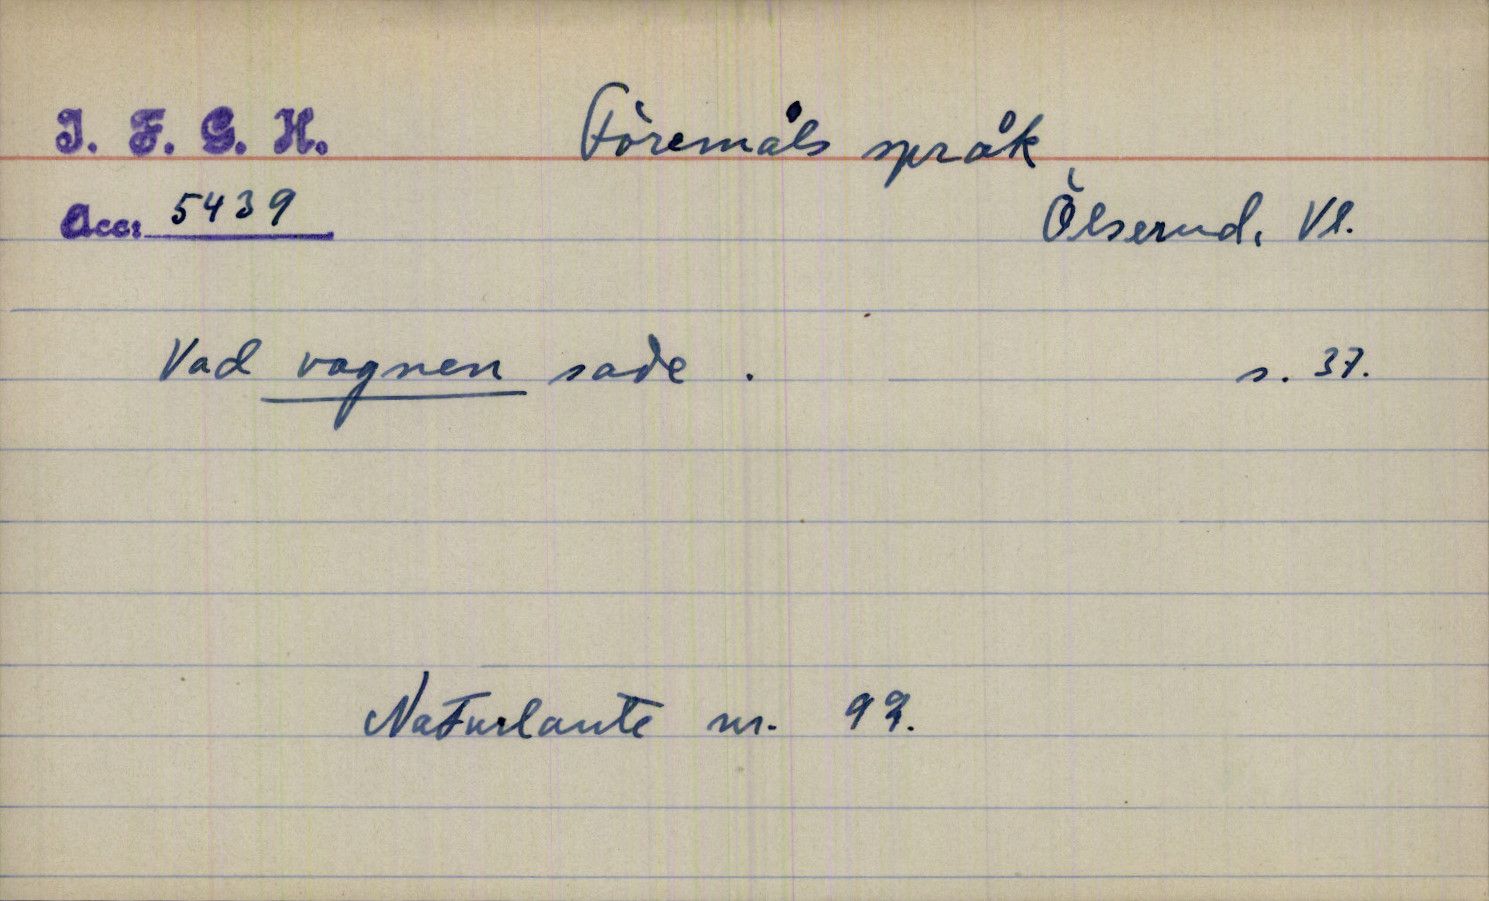 I. F. G. H.
Föremåls språk
Acc: 5439
Ölserud, Vl.
Vad vagnen sade. s. 37.
Naturlaute nr. 99.